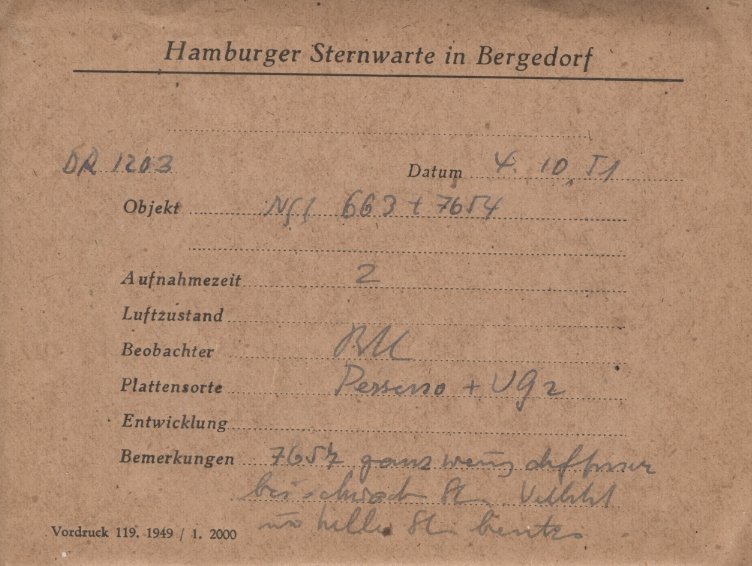 Hamburger Sternwarte in Bergedorf
DR 1203
Datum 4. 10. 51
Objekt NGC 663 + 7654
Aufnahmezeit 2
Luftzustand
Beobachter
Plattensorte + UG2
Entwicklung
Bemerkungen 7654 ganz wenig diffuser
bei schwach St. Vielleicht
nur helle St. benutzen
Vordruck 119. 1949 / 1. 2000